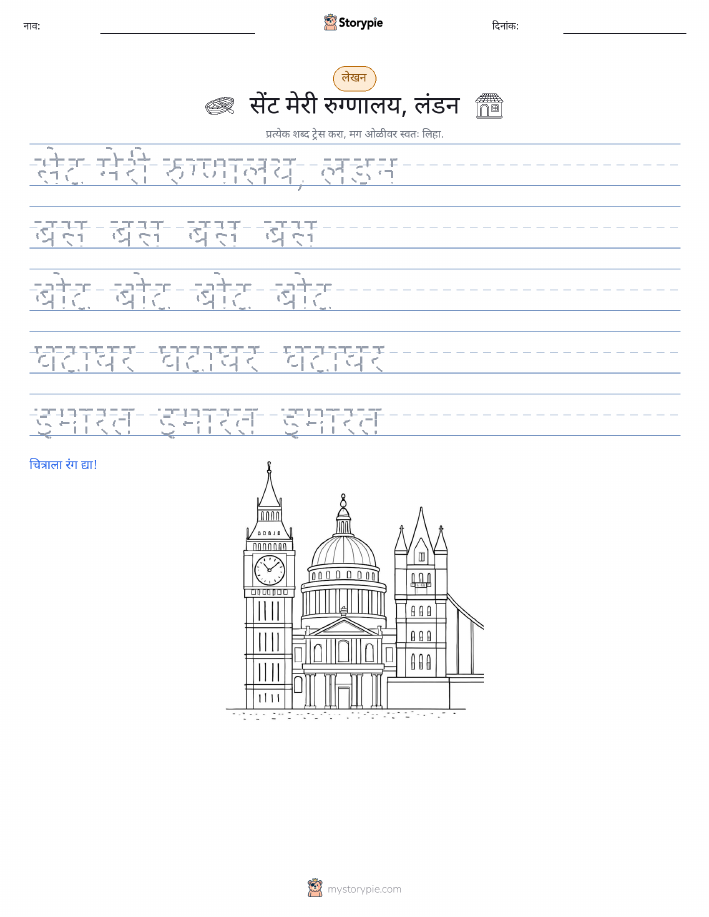 नाव: Storypie दिनांक:
लेखन
सेंट मेरी रुग्णालय, लंडन
प्रत्येक शब्द ट्रेस करा, मग ओळीवर स्वतः लिहा.
सेंट मेरी रुग्णालय, लंडन
बस बस बस बस
बोट बोट बोट बोट
घटाघर घटाघर घटाघर
इमारत इमारत इमारत
चित्राला रंग द्या!
mystorypie.com